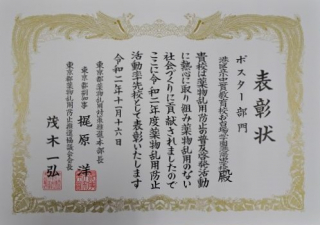 表彰状
ポスター部門
港区立小中一貫教育校お台場学園港陽小学校殿
貴校は薬物乱用防止の普及啓発活動
に熱心に取り組み薬物乱用のない
社会づくりに貢献されましたので
ここに令和二年度薬物乱用防止
活動率先校として表彰いたします
令和二年十一月十六日
東京都薬物乱用対策推進本部長
東京都副知事 梶原 洋
東京都薬物乱用防止推進協議会会長
茂木一弘